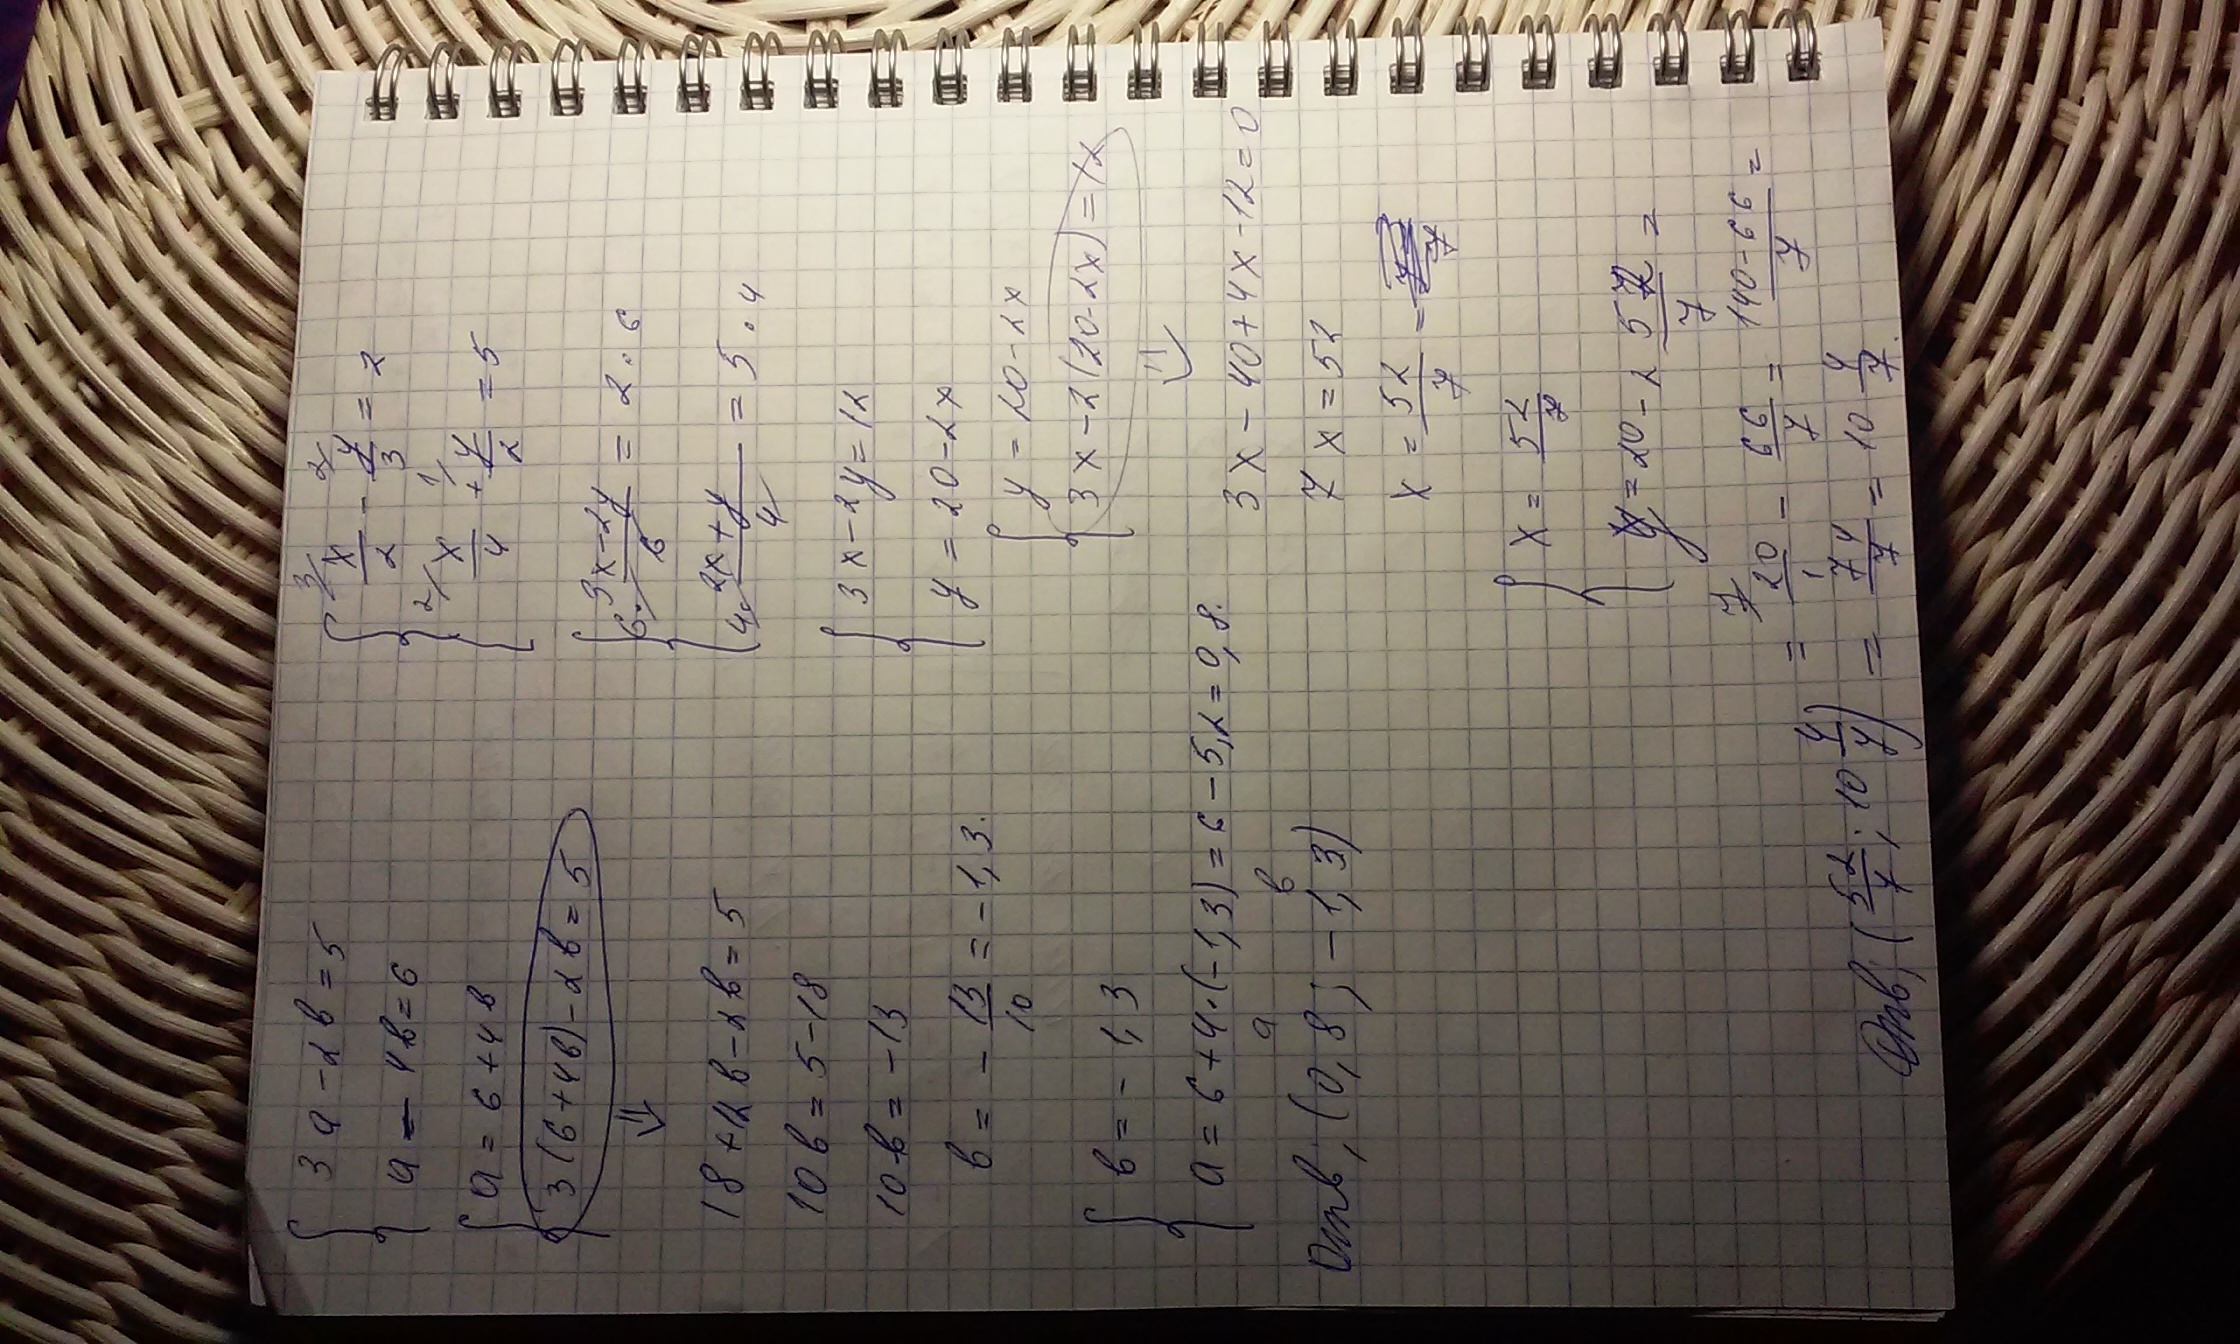 3a - 2b = 5
a - 4b = 6
a = 6 + 4b
3(6 + 4b) - 2b = 5
⇓
18 + 12b - 2b = 5
10b = 5 - 18
10b = -13
b = - 13/10 = -1,3.
b = -1,3
a = 6 + 4·(-1,3) = 6 - 5,2 = 0,8.
a b
Отв; (0,8; -1,3)
3/ x/2 - 2/ y/3 = 2
2/ x/4 + 1/ y/2 = 5
6· 3x-2y/6 = 2·6
4· 2x+y/4 = 5·4
3x - 2y = 12
y = 20 - 2x
y = 20 - 2x
3x - 2(20-2x) = 12
⇓
3x - 40 + 4x - 12 = 0
7x = 52
x = 52/7 =
x = 52/7
y = 20 - 2 52/7 =
= 7/ 20/1 - 66/7 = 140-66/7 =
= 74/7 = 10 4/7.
Отв; (52/7; 10 4/7)